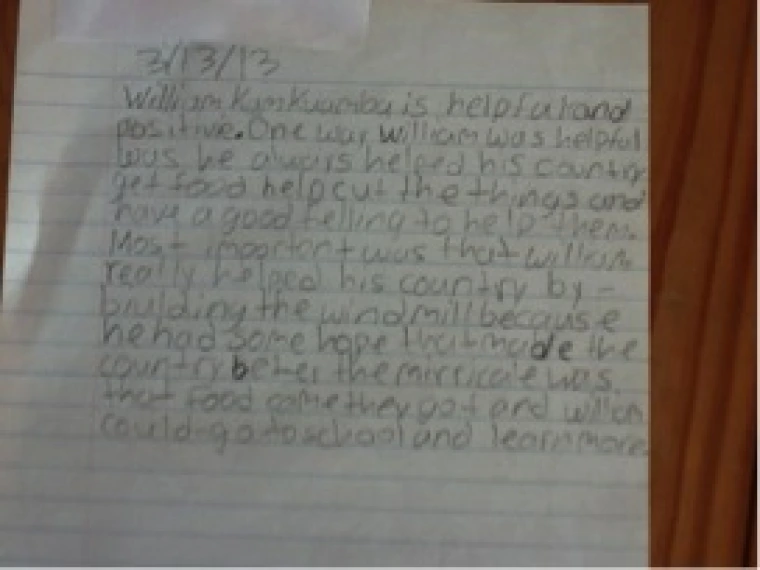 3/13/13
William Kamkuamba is helpful and
positive. One way William was helpful
was he always helped his country
get food help cut the things and
have a good felling to help them.
Most important was that william
really helped his country by -
building the windmill because
he had some hope that made the
country beter the mirricale was
that food came they got and
could go to school and learn more